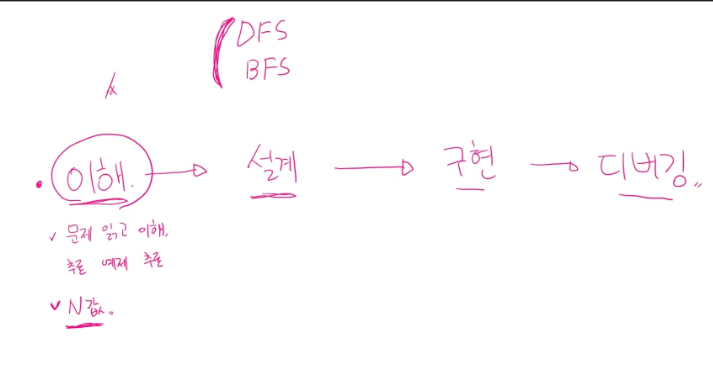 DFS
BFS
이해. → 설계 → 구현 → 디버깅..
✓ 문제 읽고 이해.
추론 예제 추론
✓ N값..